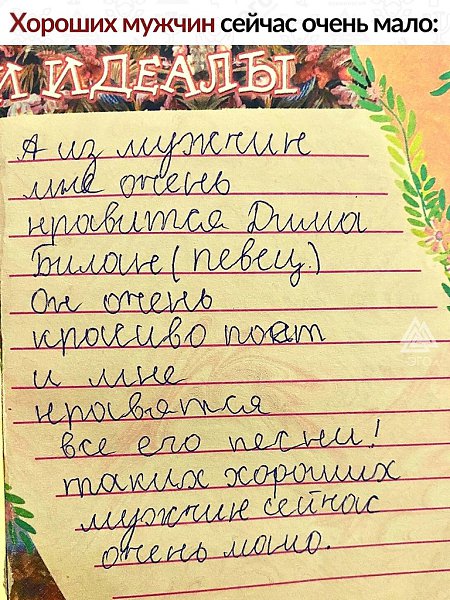 Хороших мужчин сейчас очень мало:
И ИДЕАЛЫ
А из мужчин
мне очень
нравится Дима
Билан (певец.)
Он очень
красиво поёт
и мне
нравятся
все его песни!
таких хороших
мужчин сейчас
очень мало.